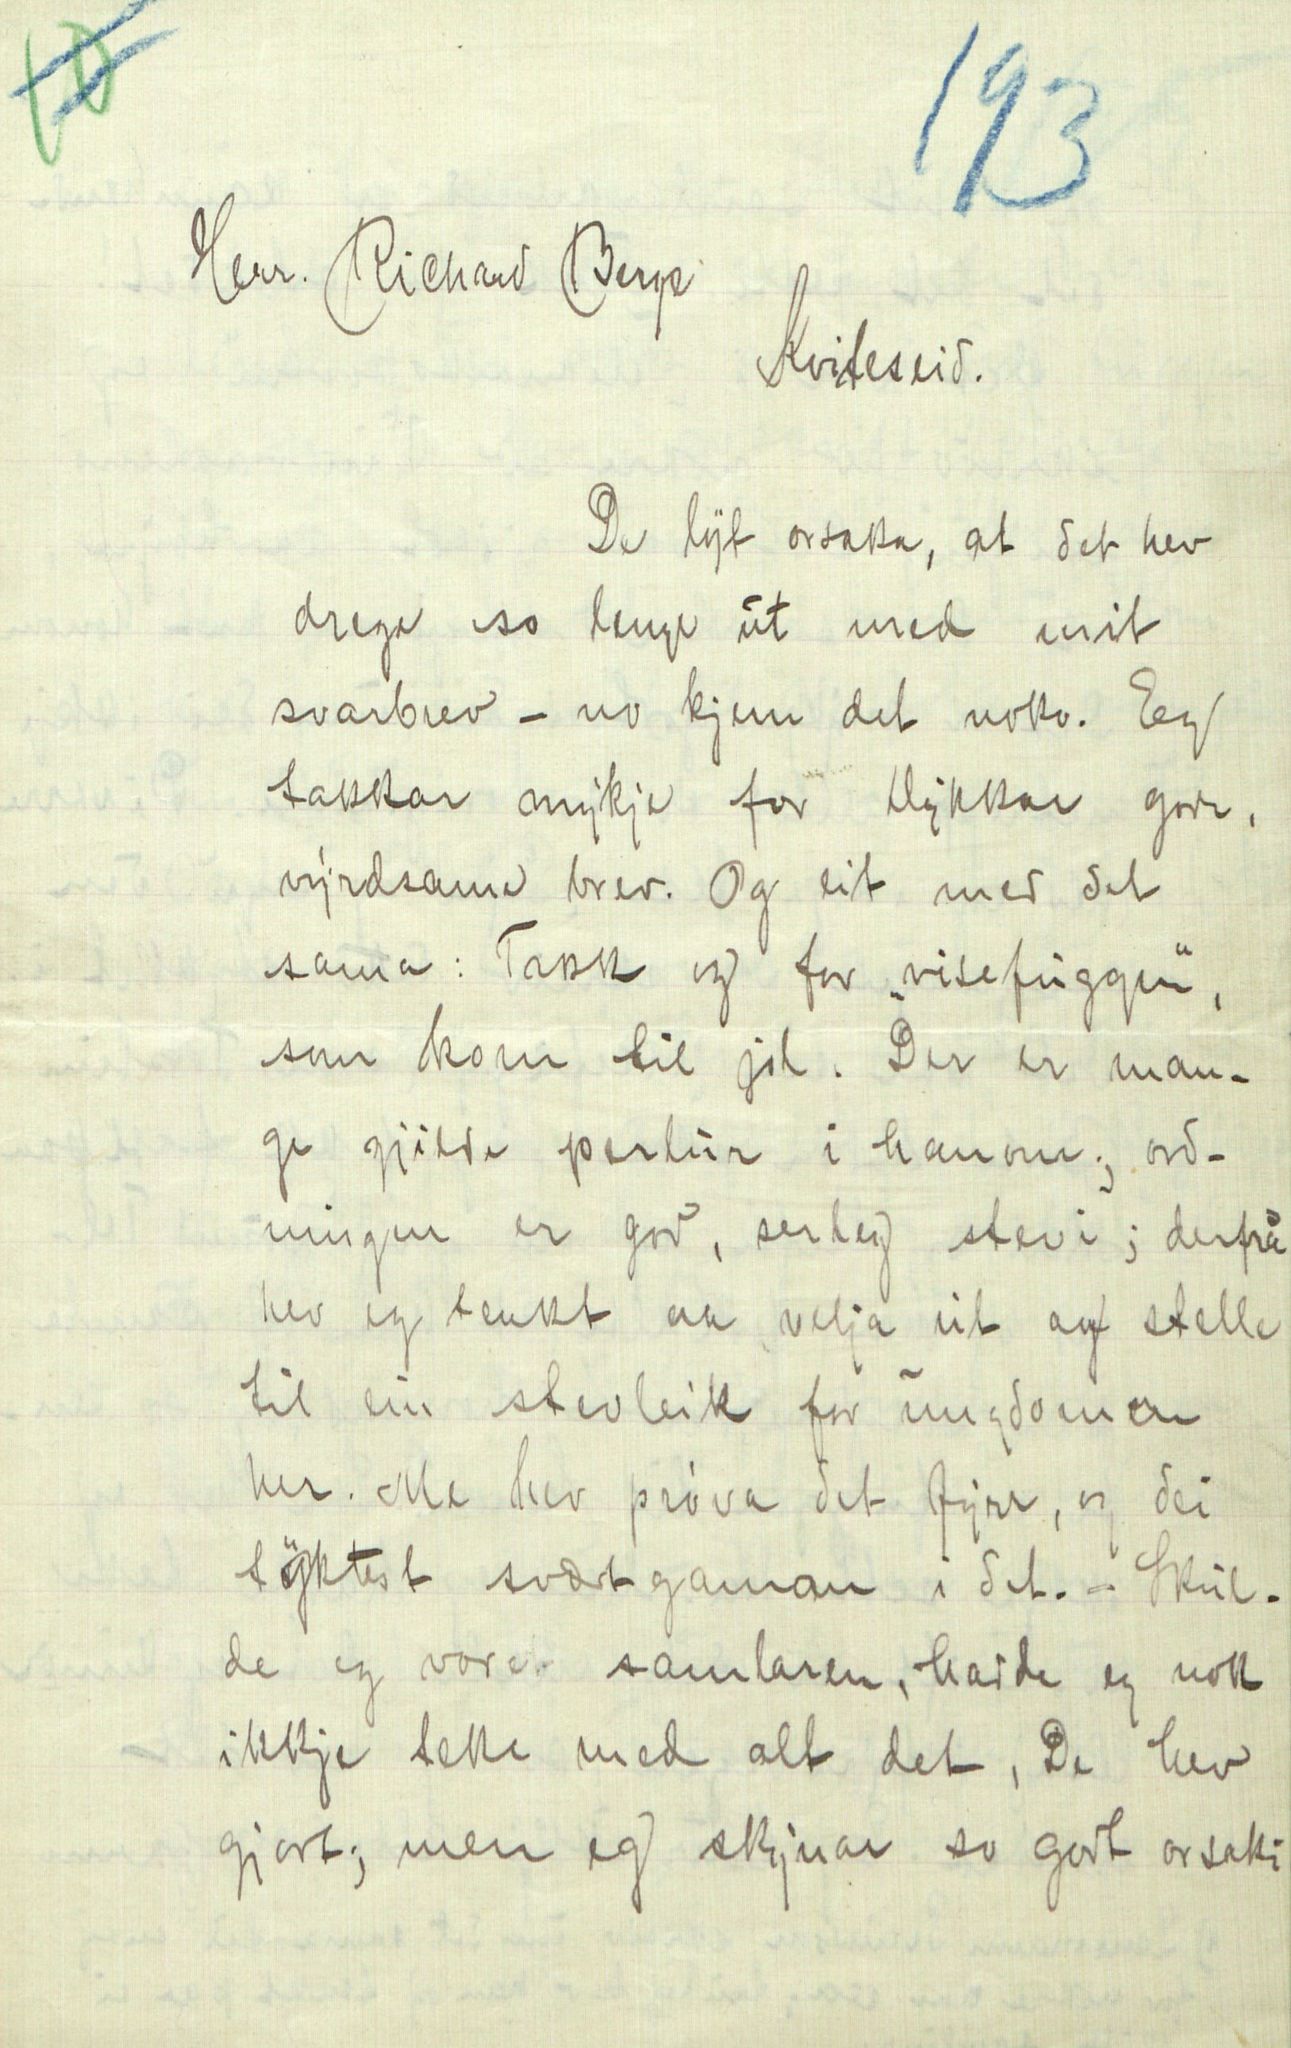 10
193
Herr. Richard Berge
Kviteseid.
De lyt orsaka, at det hev
drege so lenge ut med mit
svarbrev – no kjem det noko. Eg
takkar mykje for Dykkar gode,
vyrdsame brev. Og eit med det
sama: Takk og for „visefuggen“,
som kom til jol. Der er man-
ge gjilde perlur i hanom; ord-
ningen er god, serleg stevi; derfrå
hev eg tenkt aa velja ut og stelle
til ein stevleik for ungdomen
her. Me hev prøva det fyrr, og dei
tyktest svært gaman i det. – Skul-
de eg vore samlaren, hadde eg nok
ikkje teke med alt det, De hev
gjort; men eg skjynar so godt orsaki